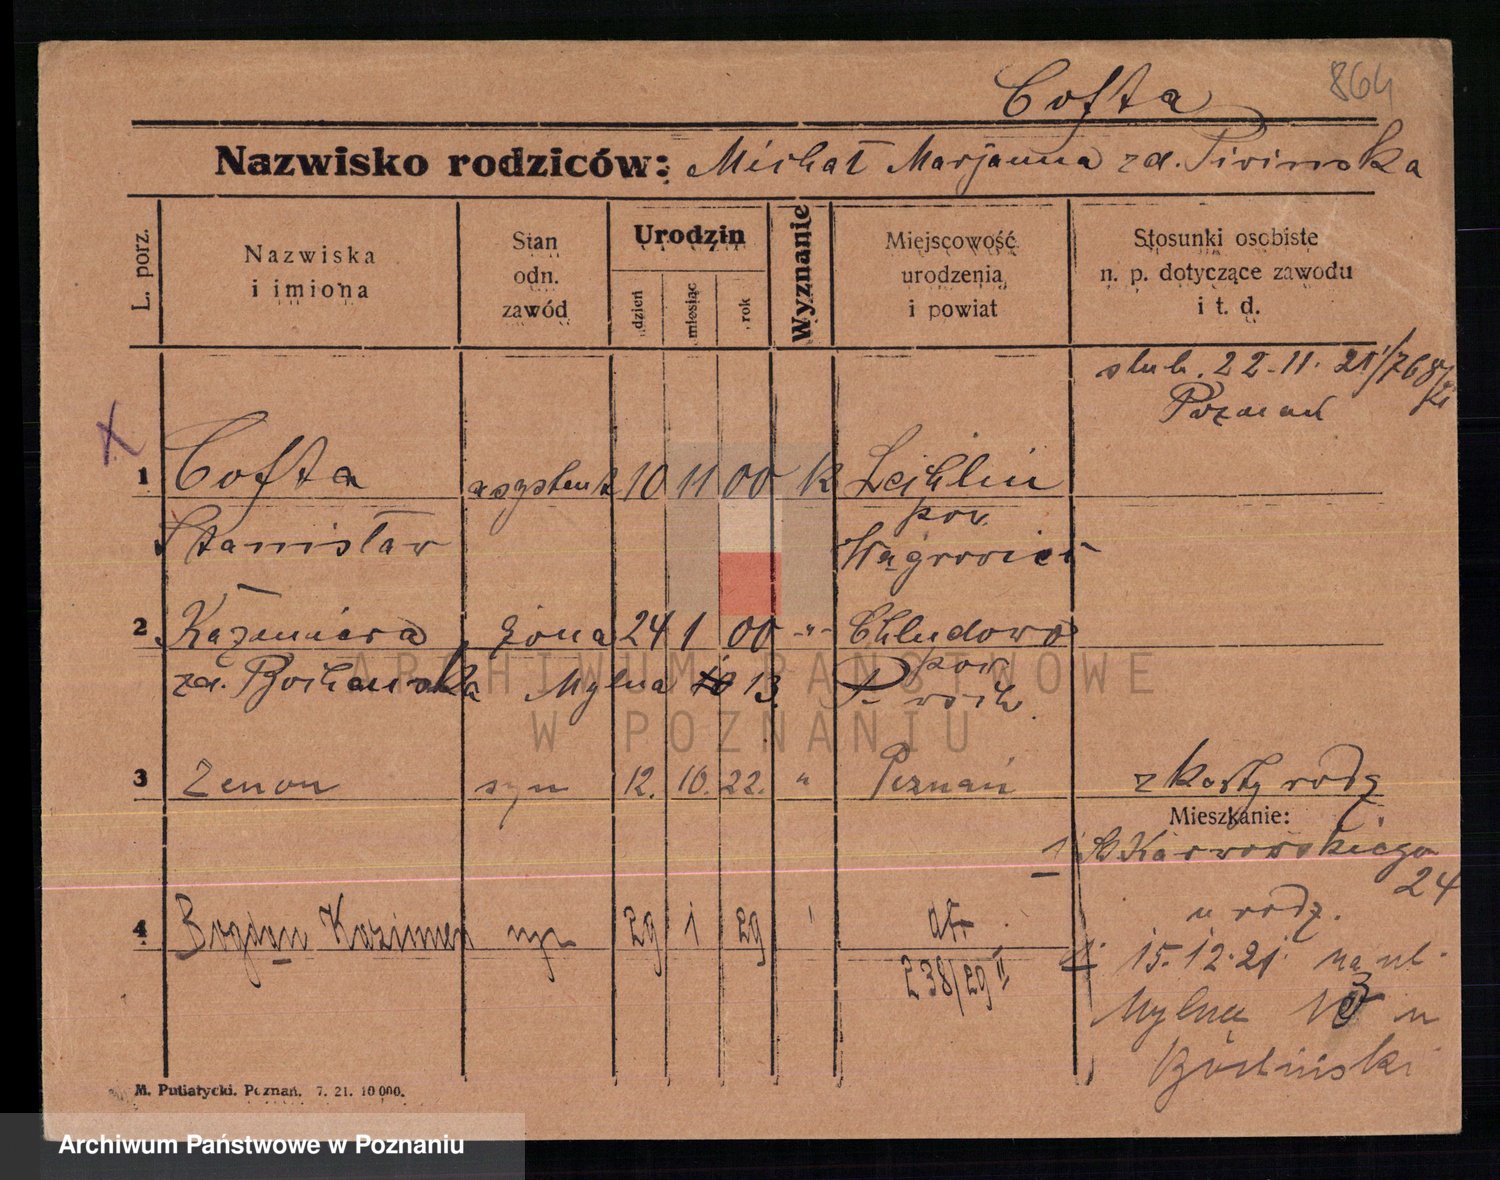 Cofta 864
Nazwisko rodziców: Michał Marjanna zd.
L. porz.
Nazwiska i imiona
Stan odn. zawód
Urodzin
dzień
miesiąc
rok
Wyznanie
Miejscowość urodzenia i powiat
Stosunki osobiste n. p. dotyczące zawodu i t. d.
ślub. 22-11. 21
Poznań
X
1 Cofta asystent 10 11 00 k
Stanisław pow. Wągrowiec
2 Kazmiera żona 24 1 00 -"- Chludowo
zd. Mylna 13 pow.
3 Zenon syn 12. 10. 22. " Poznań
Mieszkanie:
1 Karwowskiego
24
u rodz.
4 Bogdan Kazimierz syn 29 1 29
238/29 II
15.12.21. na ul.
Mylna u
M. Putiatycki. Poznań. 7. 21. 10 000.
ARCHIWUM PAŃSTWOWE
W POZNANIU
Archiwum Państwowe w Poznaniu